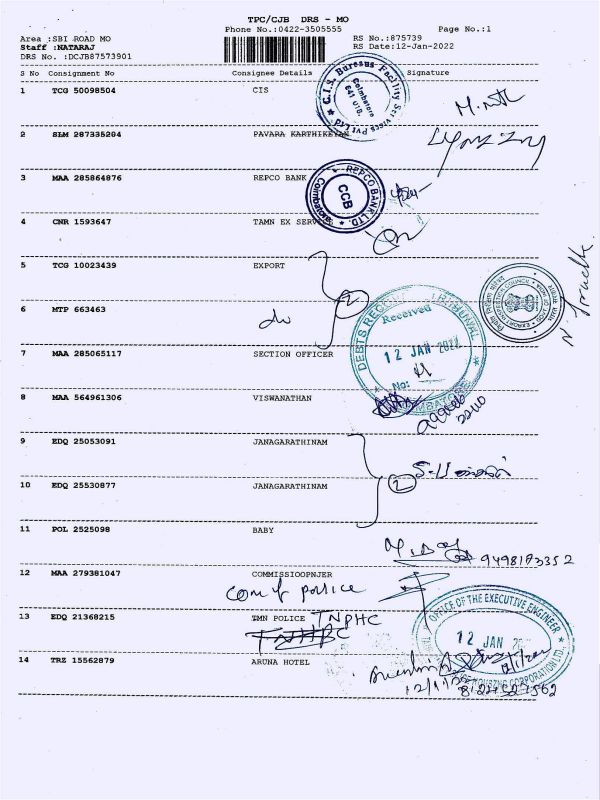 TPC/CJB DRS - MO
Phone No.:0422-3505555 Page No.:1
Area :SBI ROAD MO RS No.:875739
Staff :NATARAJ RS Date:12-Jan-2022
DRS No. :DCJB87573901
S No Consignment No Consignee Details Signature
1 TCG 50098504 CIS
C.I.S. Bureaus Facility Services Pvt Ltd
Coimbatore
641 018.
2 SLM 287335204 PAVARA KARTHIKEYAN
3 MAA 285864876 REPCO BANK
REPCO BANK LTD.
CCB
Coimbatore
4 CNR 1593647 TAMN EX SERVICE
5 TCG 10023439 EXPORT
2
6 MTP 663463
do
DEBTS RECOVERY TRIBUNAL
Received
12 JAN 2022
No:
COIMBATORE
EXPORT INSPECTION COUNCIL
7 MAA 285065117 SECTION OFFICER
8 MAA 564961306 VISWANATHAN
9 EDQ 25053091 JANAGARATHINAM
2
10 EDQ 25530877 JANAGARATHINAM
11 POL 2525098 BABY
12 MAA 279381047 COMMISSIOOPNJER
Com of police
13 EDQ 21368215 TMN POLICE TNPHC
OFFICE OF THE EXECUTIVE ENGINEER
12 JAN
HOUSING CORPORATION LTD.,
14 TRZ 15562879 ARUNA HOTEL